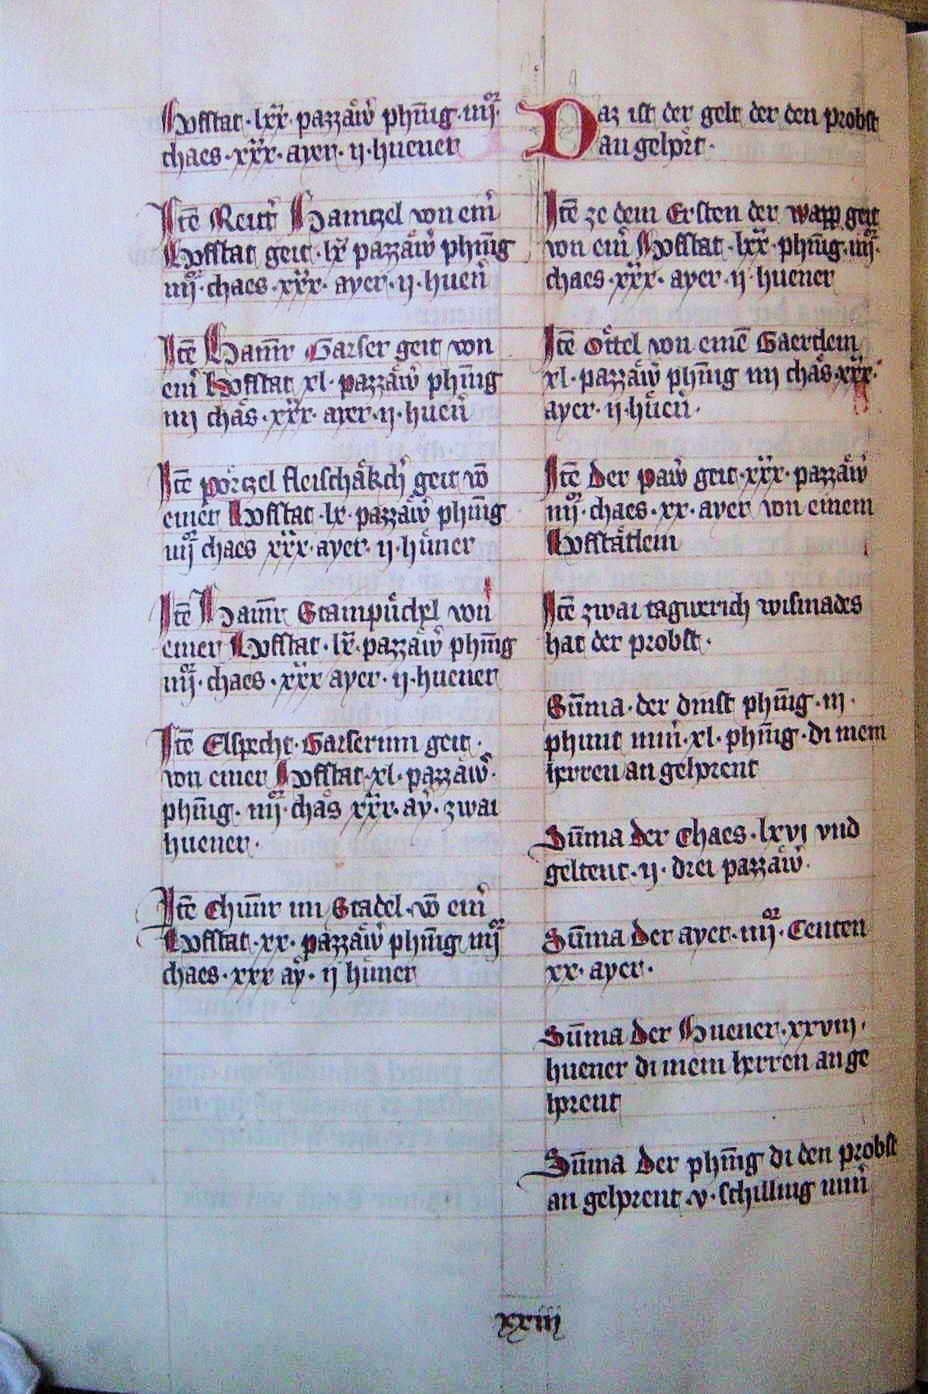 Hofstat · lxx · pazzaẘ phēnig · iiijᵒʳ·
chaes · xxx · ayer · ij · huener
Itē Reut᷑ Haintzel von ein᷑
Hofstat geit · lx pazzaẘ phēnig
iiijᵒʳ · chaes · xxx · ayer · ij · huen᷑
Itē Hanīr Garser geit von
ein᷑ Hofstat xl · pazzaẘ phēnig
iiij chaͤs · xxx · ayer · ij · huen᷑
Itē poͤrtzel fleischaͤkch᷑ geit vō
einer Hofstat · lx · pazzaẘ phēnig
iiijᵒʳ chaes xxx · ayer · ij · huͤner
Itē Hanīr Stampuͤchxl von
einer Hofstat · lx · pazzaẘ phēnig
iiijᵒʳ · chaes · xxx ayer · ij · huener
Itē Elspecht · Garserinn geit ·
von einer Hofstat · xl · pazzaẘ ·
phēnig · iiijᵒʳ · chaͤs xxx · aẏ · zwai
huener ·
Itē Chunr im Stadel · vō ein᷑
Hofstat · xx · pazzaẘ phēnig iiijᵒʳ
chaes · xxx aẏ · ij huͤner
Daz ist der gelt der den probst
an gehoͤrt ·
Itē ze dem Ersten der geit
von ein᷑ Hofstat · lxx · phēnig · iiijᵒʳ·
chaes · xxx · ayer · ij · huener
Itē Oͤttel von einē Gaertlein
xl · pazzaẘ phēnig iiij chaͤs · xxx ·
ayer · ij · huͤen᷑ ·
Itē Der paẘ geit · xxx · pazzaẘ
iiijᵒʳ · chaes · xx · ayer von einem
Hofstaͤtlein
Itē zwai tagwerich wismades
hat der probst ·
Sūma · der dinst phēnig · iij ·
phunt min᷑ · xl · phēnig · di mein
herren an gehorent
Sūma der Chaes · lxvi vnd
geltent · ij · drei pazzaẘ ·
Sūma der ayer · iiijᵒʳ · Centen
xx · ayer ·
Sūma der Huener · xxviij ·
huener di mein herren an ge
horent
Sūma der phēnig di den probst
an gehorent · v · schilling min᷑
xxiij